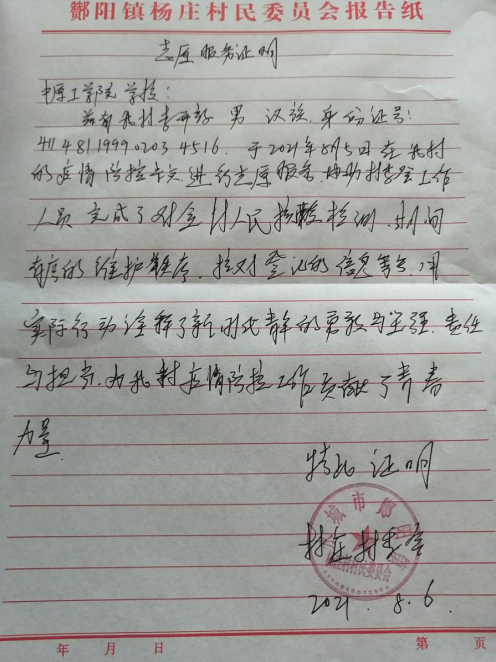 酂阳镇杨庄村民委员会报告纸
志愿服务证明
中原工学院学校:
兹有我村李开放 男 汉族 身份证号:
411481199902034516. 于2021年8月5日在我村
的疫情防控中交进行志愿服务.协助村委会工作
人员完成了对全村人民核酸检测.期间
有序的维护秩序.核对登记的信息等等.用
实际行动诠释了新时代青年的勇敢与坚强.责任
与担当.为我村疫情防控工作贡献了青春
力量.
特此证明
城市酂阳
村民委员会
杨庄村委会
2021.8.6.
年 月 日
第 页